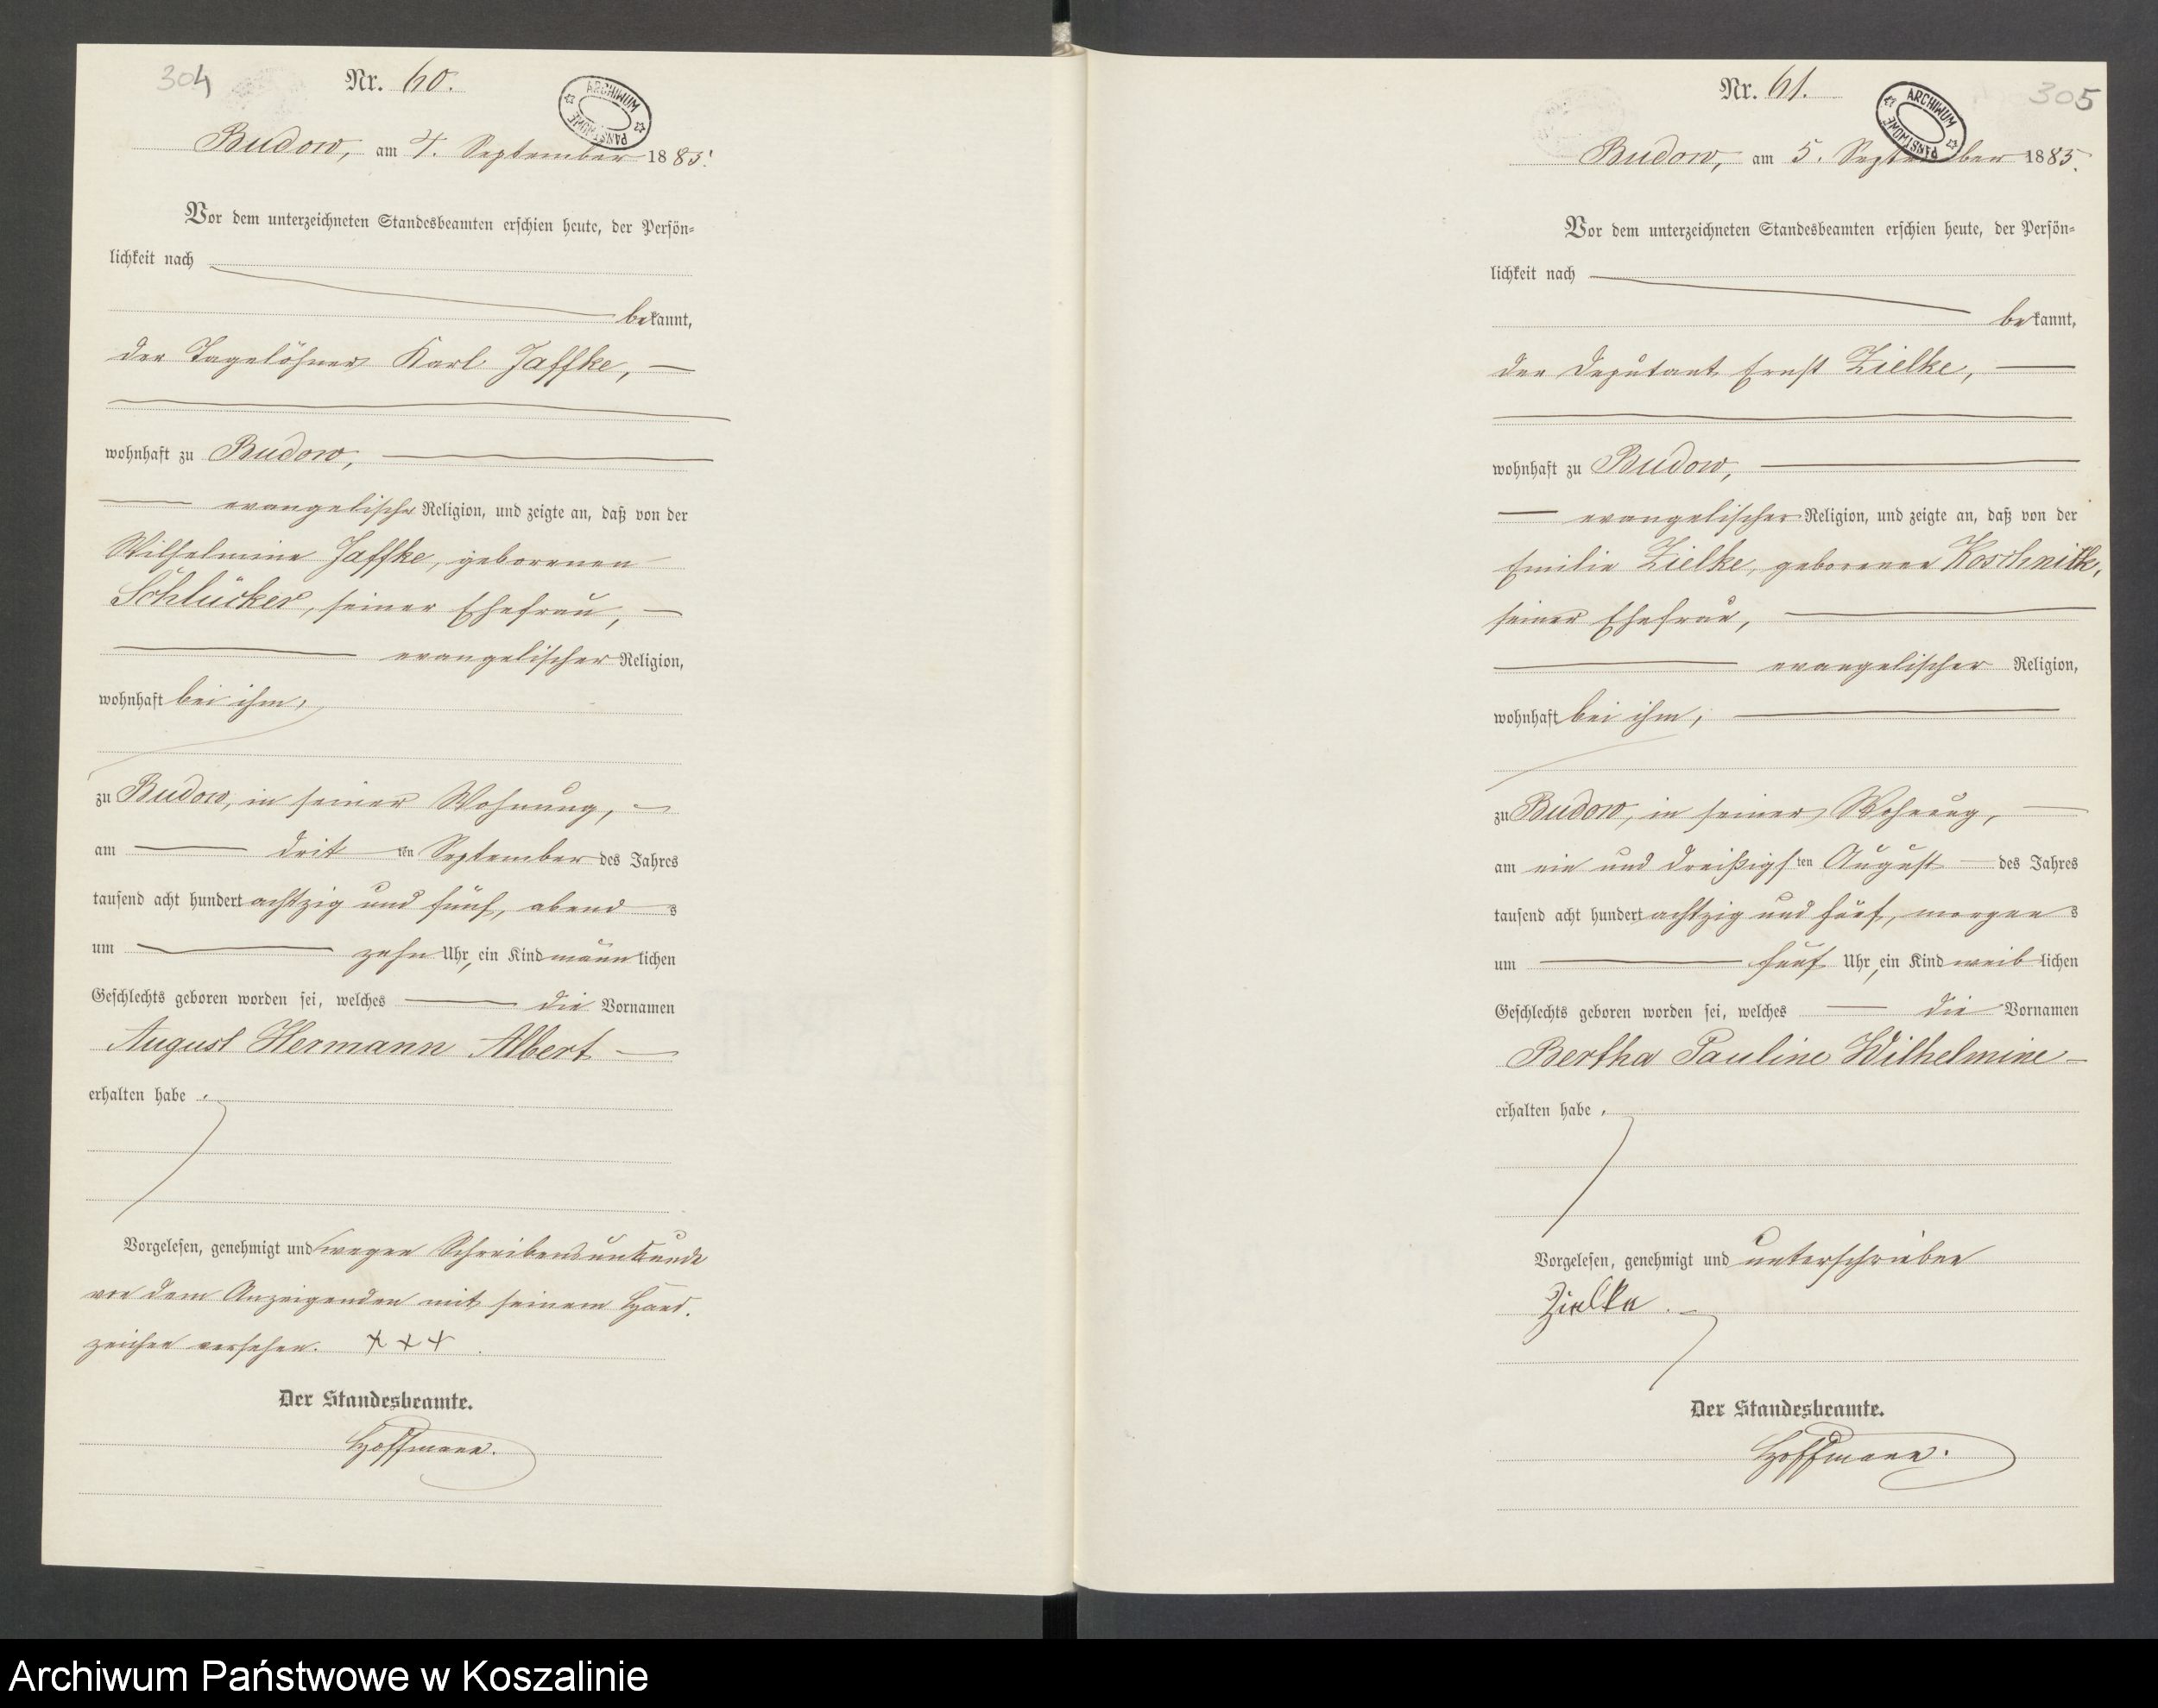 304
Nr. 60.
ARCHIWUM PAŃSTWOWE
Budow, am 4. September 1885.
Vor dem unterzeichneten Standesbeamten erschien heute, der Persön-
lichkeit nach
bekannt,
der Tagelöhner Karl Jaffke,
wohnhaft zu Budow,
evangelischer Religion, und zeigte an, daß von der
Wilhelmine Jaffke, geborenen
Schlücker, seiner Ehefrau,
evangelischer Religion,
wohnhaft bei ihm,
zu Budow, in seiner Wohnung,
am dritten September des Jahres
tausend acht hundert achtzig und fünf, abends
um zehn Uhr, ein Kind männlichen
Geschlechts geboren worden sei, welches die Vornamen
August Hermann Albert
erhalten habe.
Vorgelesen, genehmigt und wegen Schreibensunkunde
von dem Anzeigenden mit seinem Hand-
zeichen versehen. +++
Der Standesbeamte.
Hoffmann.
305
Nr. 61.
ARCHIWUM PAŃSTWOWE
Budow, am 5. September 1885.
Vor dem unterzeichneten Standesbeamten erschien heute, der Persön-
lichkeit nach
bekannt,
der Deputant Ernst Zielke,
wohnhaft zu Budow,
evangelischer Religion, und zeigte an, daß von der
Emilie Zielke, geborenen Koschnitk,
seiner Ehefrau,
evangelischer Religion,
wohnhaft bei ihm,
zu Budow, in seiner Wohnung,
am ein und dreißigsten August des Jahres
tausend acht hundert achtzig und fünf, morgens
um fünf Uhr, ein Kind weiblichen
Geschlechts geboren worden sei, welches die Vornamen
Bertha Pauline Wilhelmine
erhalten habe.
Vorgelesen, genehmigt und unterschrieben
Zielke.
Der Standesbeamte.
Hoffmann.
Archiwum Państwowe w Koszalinie